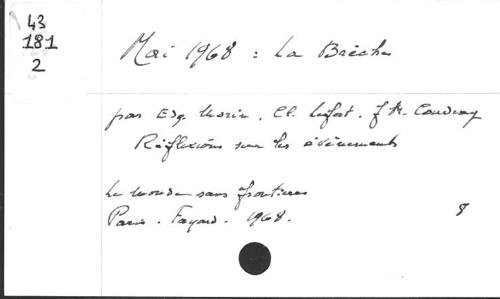 43
181
2
Mai 1968 : La Brèche
par Edg. Morin, Cl. Lefort, J M. Coudray
Réflexions sur les événements
Le monde sans frontières
Paris. Fayard. 1968.
8